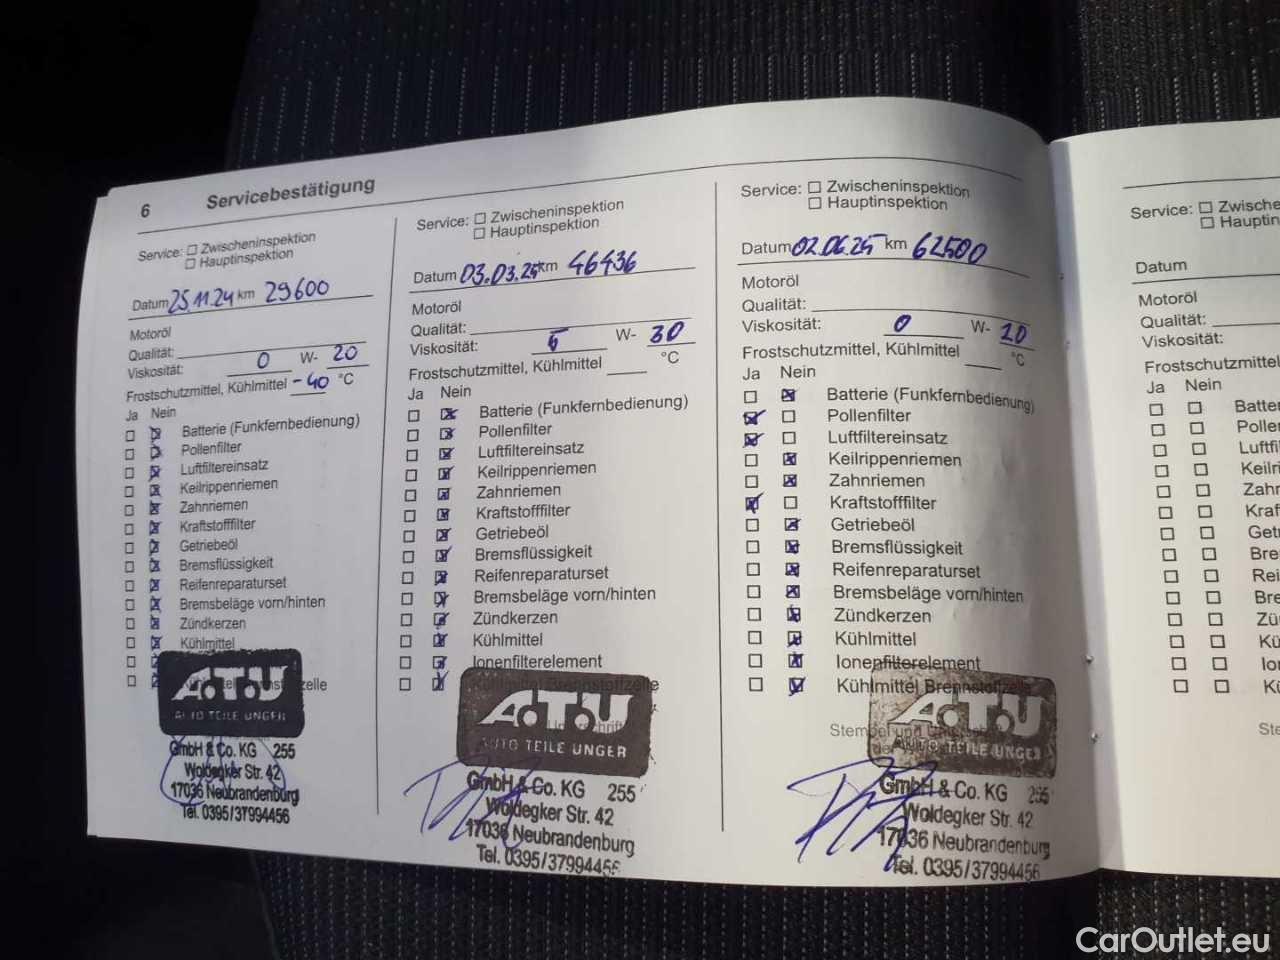 6 Servicebestätigung
Service: Zwischeninspektion
Hauptinspektion
Datum 25.11.24 km 29600
Motoröl
Qualität:
Viskosität: 0 W- 20
Frostschutzmittel, Kühlmittel -40 °C
Ja Nein
Batterie (Funkfernbedienung)
Pollenfilter
Luftfiltereinsatz
Keilrippenriemen
Zahnriemen
Kraftstofffilter
Getriebeöl
Bremsflüssigkeit
Reifenreparaturset
Bremsbeläge vorn/hinten
Zündkerzen
Kühlmittel
A.T.U
AUTO TEILE UNGER
GmbH & Co. KG 255
Woldegker Str. 42
17036 Neubrandenburg
Tel. 0395/37994456
Service: Zwischeninspektion
Hauptinspektion
Datum 03.03.25 km 46436
Motoröl
Qualität:
Viskosität: 5 W- 30
Frostschutzmittel, Kühlmittel °C
Ja Nein
Batterie (Funkfernbedienung)
Pollenfilter
Luftfiltereinsatz
Keilrippenriemen
Zahnriemen
Kraftstofffilter
Getriebeöl
Bremsflüssigkeit
Reifenreparaturset
Bremsbeläge vorn/hinten
Zündkerzen
Kühlmittel
Ionenfilterelement
Kühlmittel Brennstoffzelle
A.T.U
AUTO TEILE UNGER
GmbH & Co. KG 255
Woldegker Str. 42
17036 Neubrandenburg
Tel. 0395/37994456
Service: Zwischeninspektion
Hauptinspektion
Datum 02.06.25 km 62500
Motoröl
Qualität:
Viskosität: 0 W- 20
Frostschutzmittel, Kühlmittel °C
Ja Nein
Batterie (Funkfernbedienung)
Pollenfilter
Luftfiltereinsatz
Keilrippenriemen
Zahnriemen
Kraftstofffilter
Getriebeöl
Bremsflüssigkeit
Reifenreparaturset
Bremsbeläge vorn/hinten
Zündkerzen
Kühlmittel
Ionenfilterelement
Kühlmittel Brennstoffzelle
Stempel und
der
A.T.U
AUTO TEILE UNGER
GmbH & Co. KG 255
Woldegker Str. 42
17036 Neubrandenburg
Tel. 0395/37994456
Service: Zwische
Hauptins
Datum
Motoröl
Qualität:
Viskosität:
Frostschutzmittel
Ja Nein
Batte
Poller
Luftfi
Keilri
Zahr
Kraf
Get
Bre
Rei
Bre
Zü
Kü
Io
Kü
Ste
CarOutlet.eu